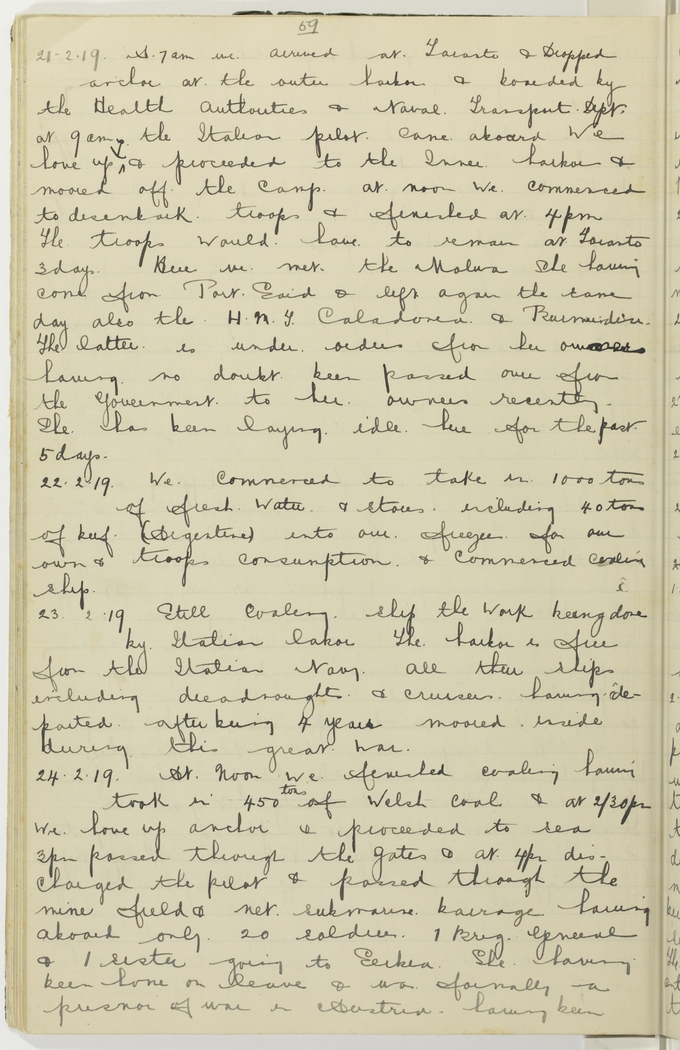 59
21-2-19. At. 7 am we. arrived at. Taranto & Dropped
anchor at the outer harbor & boarded by
the Health Authorities & Naval. Transport Dept.
at 9 am. the Italian pilot. came aboard We
hove up & proceeded to the Inner. harbor &
moored off the Camp. at noon we. commenced
to disembark. troops & finished at. 4 pm
The troops would. have. to remain at Taranto
3 days. Here we. met. the Malwa She having
come from Port. Said & left again the same
day also the H.M.T. Caladonia. &
The latter. is under. orders from her owners
having. no doubt. been passed over from
the Government. to her. owners recently.
She. has been laying. idle. here for the past
5 days.
22.2.19. We. commenced to take in 1000 tons
of fresh. Water. & stores. including 40 tons
of beef. (Argentine) into our. freezer for our
own & troops consumption. & commenced coaling
ship.
23. 2.19 Still Coaling. ship the work being done
by. Italian labor The. harbor is free
from the Italian Navy. all their ships
including dreadnoughts & cruisers. having de-
parted. after being 4 years moored. inside
during this great. war.
24.2.19. At. Noon We finished coaling having
took in 450 tons of Welsh Coal & at 2/30 pm
We. hove up anchor & proceeded to sea
3 pm passed through the gates & at. 4 pm dis-
charged the pilot & passed through the
mine field & net. submarine. barrage having
aboard only. 20 soldiers. 1 Brig. General
& 1 sister going to Serbia. She. having
been home on leave & was formally a
prisnor of war in Austria. having been